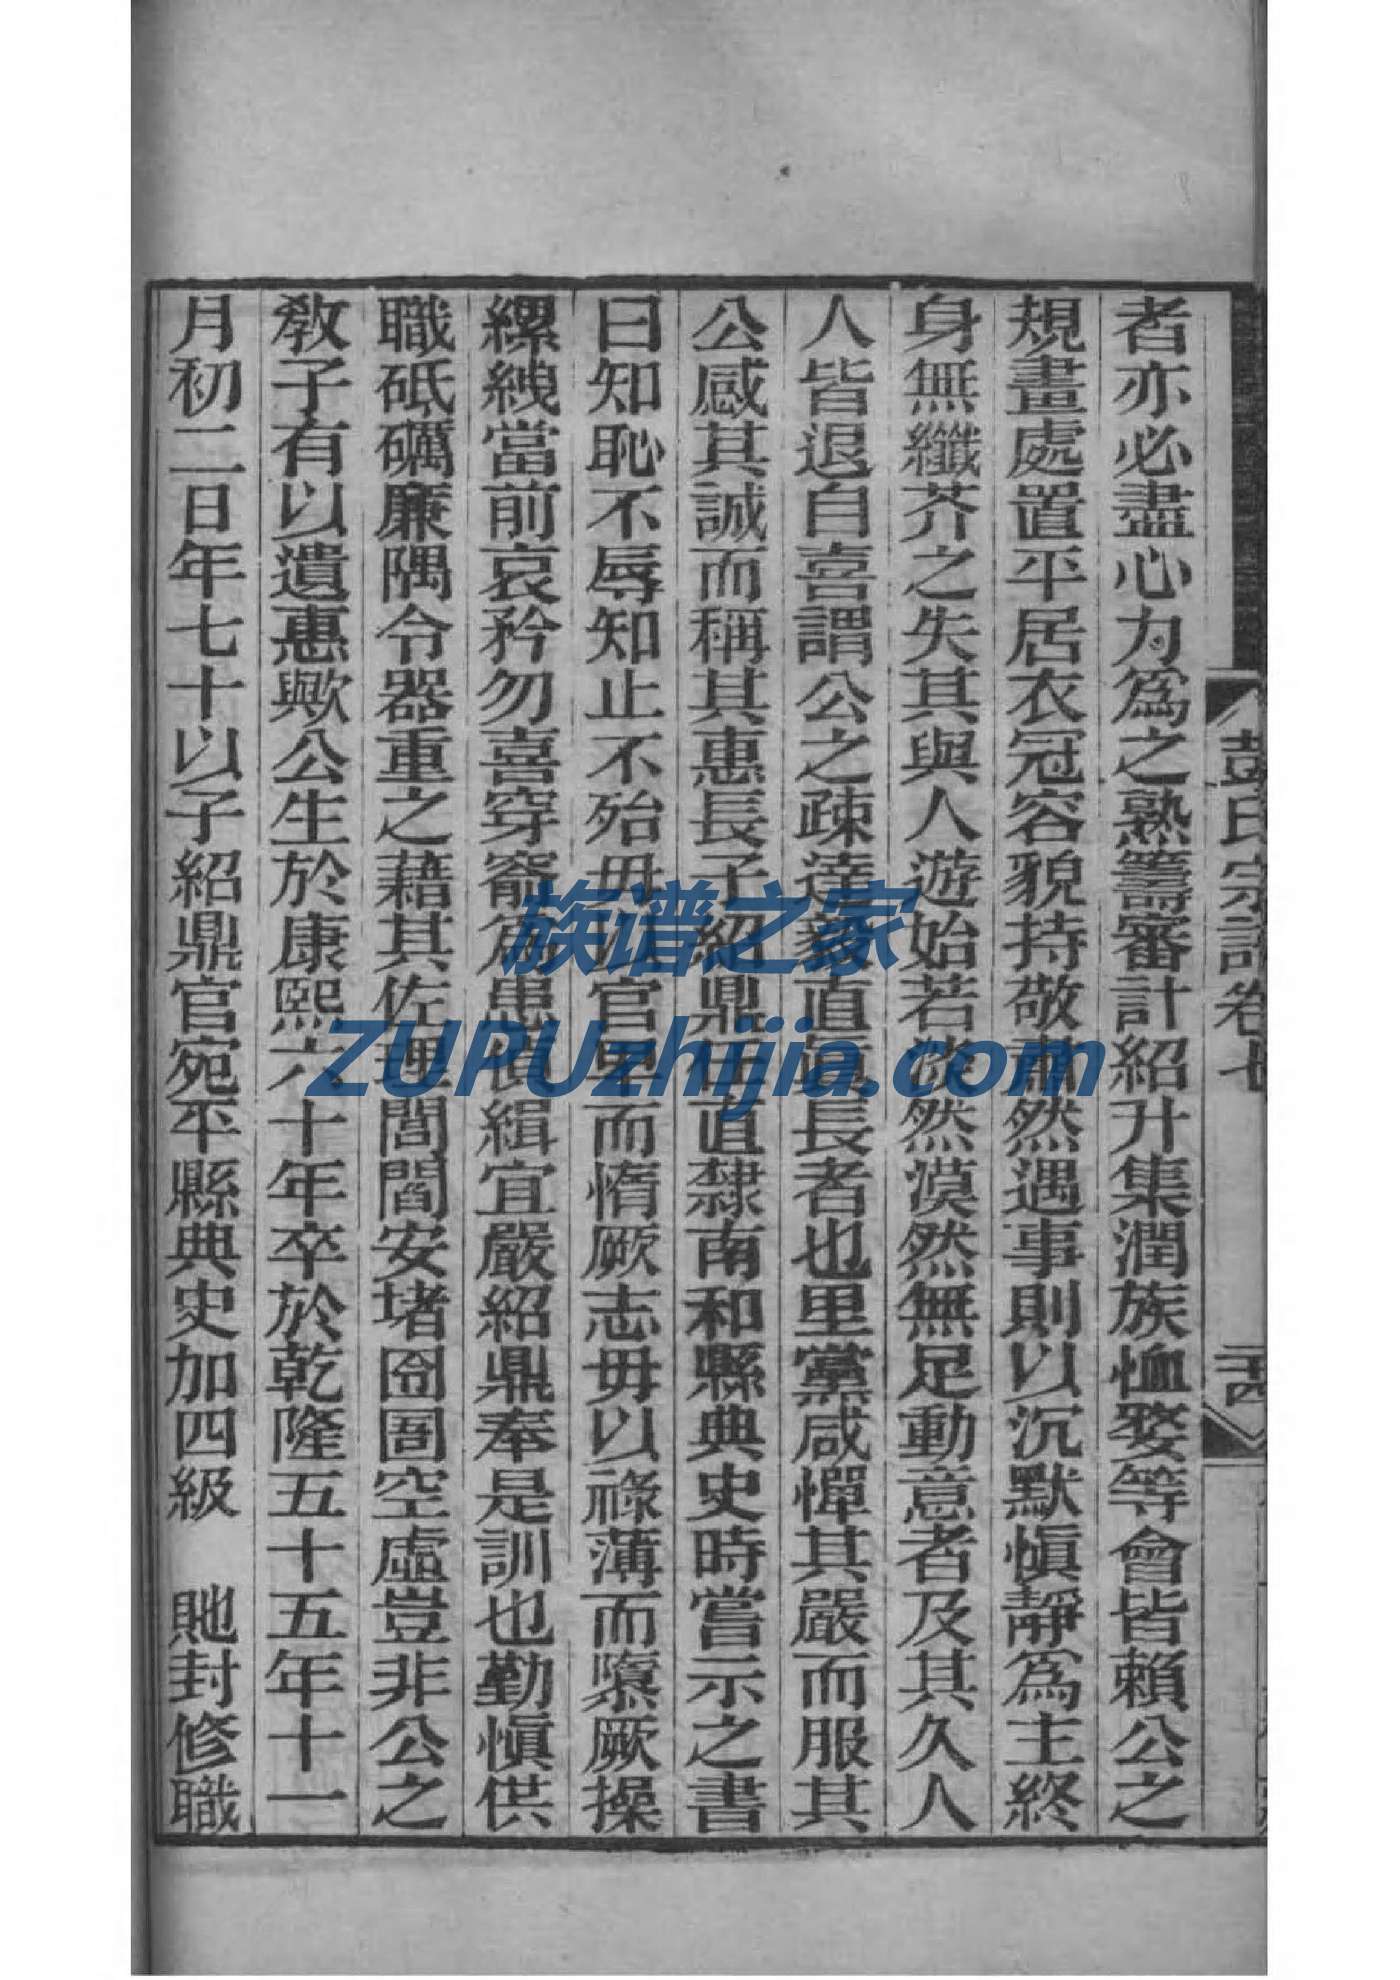 者亦必盡心力爲之熟籌審計紹升集潤族恤嫠等會皆賴公之
規畫處置平居衣冠容貌持敬肅然遇事則以沉默愼靜爲主終
身無纖芥之失其與人遊始若淡然漠然無足動意者及其久人
人皆退自喜謂公之疎達毅直眞長者也里黨咸憚其嚴而服其
公感其誠而稱其惠長子紹鼎任直隸南和縣典史時嘗示之書
曰知恥不辱知止不殆毋以官卑而惰厥志毋以祿薄而隳厥操
縲絏當前哀矜勿喜穿窬爲患偵緝宜嚴紹鼎奉是訓也勤愼供
職砥礪廉隅令器重之藉其佐理閭閻安堵囹圄空虛豈非公之
教子有以遺惠歟公生於康熙六十年卒於乾隆五十五年十一
月初二日年七十以子紹鼎官宛平縣典史加四級 貤封修職
彭氏宗譜卷七
二十四
族谱之家
ZUPUzhijia.com